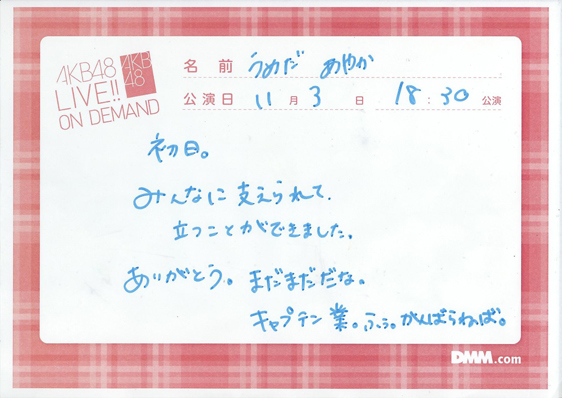 AKB48
LIVE!!
ON DEMAND
AKB
48
名 前 うめだ あやか
公演日 11 月 3 日 18:30 公演
初日。
みんなに支えられて、
立つことができました。
ありがとう。まだまだだな。
キャプテン業。ふぅ。がんばらねば。
DMM.com